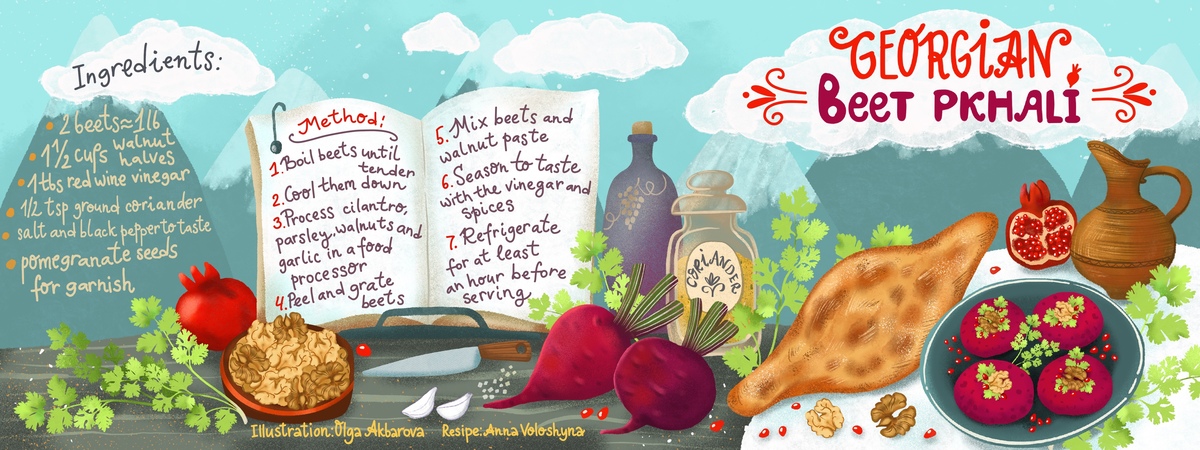 Ingredients:
2 beets≈1lb
1 1/2 cups walnut
halves
1 tbs red wine vinegar
1/2 tsp ground coriander
salt and black pepper to taste
pomegranate seeds
for garnish
Method:
1. Boil beets until
tender
2. Cool them down
3. Process cilantro,
parsley, walnuts and
garlic in a food
processor
4. Peel and grate
beets
5. Mix beets and
walnut paste
6. Season to taste
with the vinegar and
spices
7. Refrigerate
for at least
an hour before
serving
GEORGIAN
BEET PKHALI
CORIANDER
Illustration: Olga Akbarova Resipe: Anna Voloshyna